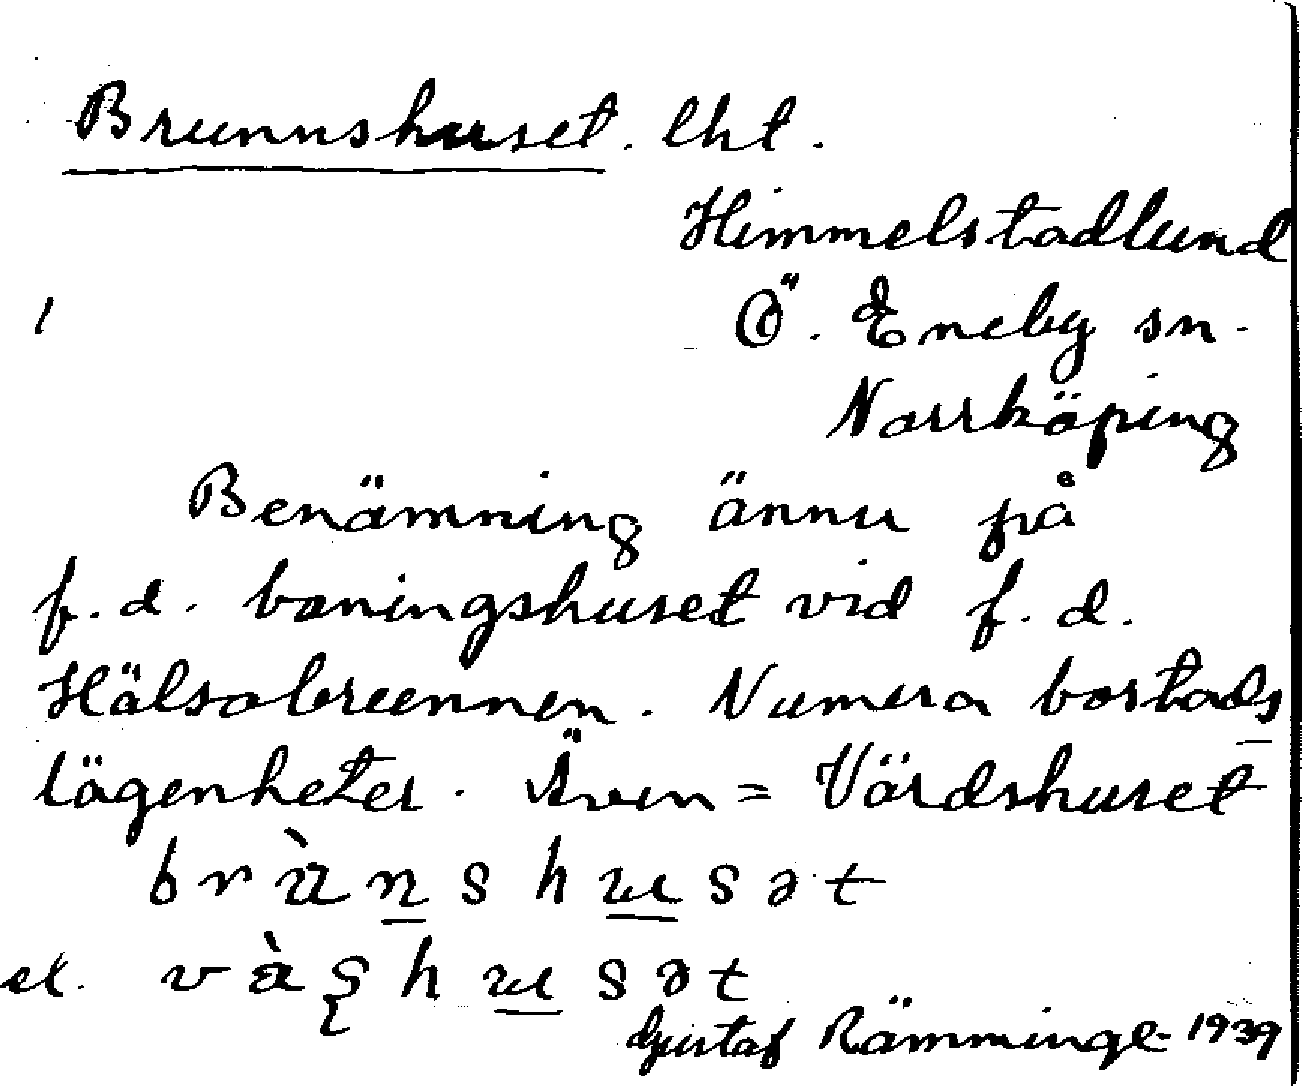 Brunnshuset. lht.
Himmelstadlund
Ö. Eneby sn.
Norrköping
Benämning ännu på
f.d. boningshuset vid f.d.
Hälsobrunnen. Numera bostads
lägenheter. Även = Värdshuset
el.
Gustaf Rämminge 1939